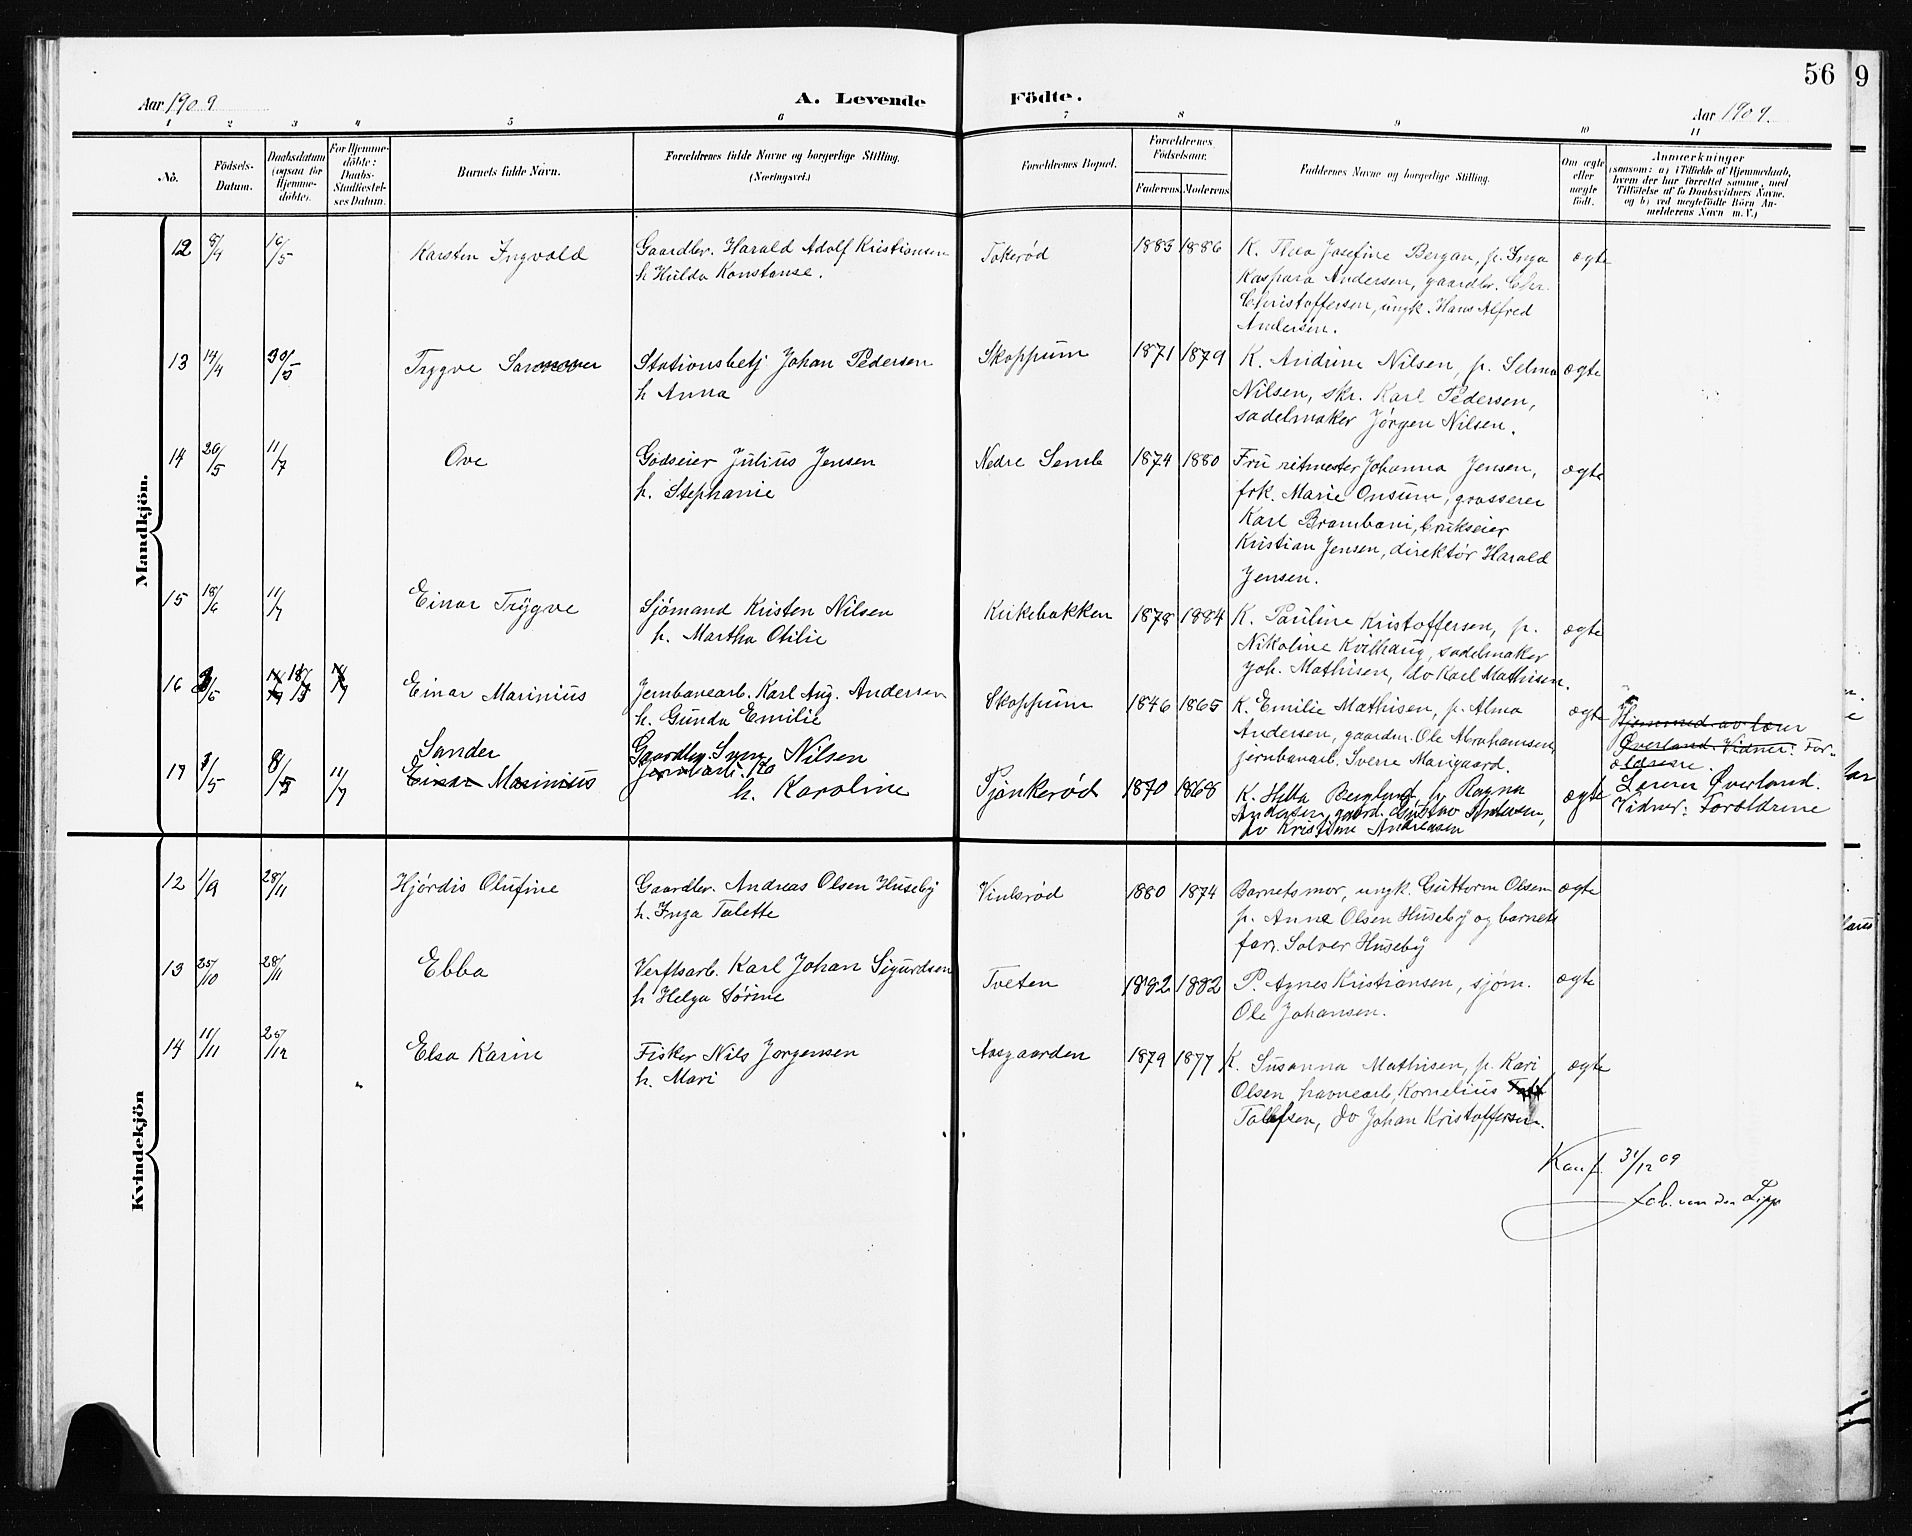 56 9
Aar 1909 A. Levende Födte. Aar 1909.
1 2 3 4 5 6 7 8 9 10 11
No.
Födsels-
Datum.
Daabsdatum
(ogsaa for
Hjemme-
döbte).
For Hjemme-
döbte:
Daabs-
Stadfæstel-
ses Datum.
Barnets fulde Navn.
Forældrenes fulde Navne og borgerlige Stilling.
(Næringsvei.)
Forældrenes Bopæl.
Forældrenes
Födselsaar.
Faderens Moderens
Faddernes Navne og borgerlige Stilling.
Om ægte
eller
uægte
födt.
Anmærkninger
(saasom: a) i Tilfælde af Hjemmedaab,
hvem der har forrettet samme, med
Tilföielse af to Daabsvidners Navne,
og b) ved uægtefödte Börn An-
melderens Navn m. V.)
Mandkjön.
12 8/4 16/5 Karsten Ingvald
Gaardbr. Harald Adolf Kristiansen
h Hulda Konstanse.
Tokerød 1883 1886
K. Thea Josefine Bergan, p. Inga
Kaspara Andersen, gaardbr. Chr.
Christoffersen, ungk. Hans Alfred
Andersen.
ægte
13 14/4 30/5 Trygve
Stationsbetj Johan Pedersen
h Anna
Skoppum 1871 1879
K. Andrine Nilsen, p. Selma
Nilsen, skr. Karl Pedersen,
sadelmaker Jørgen Nilsen.
ægte
14 20/5 11/7 Ove
Godseier Julius Jensen
h. Stephanie
Nedre Semb 1874 1880
Fru ritmester Johanna Jensen,
frk. Marie Onsum, grosserer
Karl Brambani, brukseier
Kristian Jensen, direktør Harald
Jensen.
ægte
15 18/6 11/7 Einar Trygve
Sjömand Kristen Nilsen
h. Martha Otilie
Kirkebakken 1878 1884
K. Pauline Kristoffersen, p.
Nikoline Kvilhaug, sadelmaker
Joh. Mathisen, do Karl Mathisen.
ægte
16 Einar Marinius
Jernbanearb. Karl Aug. Andersen
h. Gunda Emilie
Skoppum 1846 1865
K. Emilie Mathisen, p. Alma
Andersen, gaardbr. Ole Abrahamsen,
jernbanearb. Sverre Marigaard.
ægte
Hjemmed av lærer
Øverland. Vidner: For-
ældrene.
17 3/5 8/5 11/7 Sander
Einar Marinius
Gaardbr. Nilsen
h. Karoline
Pjønkerød 1870 1868
K. Hilda Berglund, p Ragna
Andersen, gaard. Gustav Andersen,
do Kristine Andreasen
ægte
Lærer Øverland.
Vidner: Forældrene
Kvindekjön
12 1/9 28/11 Hjördis Olufine
Gaardbr. Andreas Olsen Huseby
h. Inga Talette
Vinlsrød 1880 1874
Barnets mor, ungk. Guttorm Olsen
p. Anna Olsen Huseby og barnets
far. Solver Huseby
ægte
13 25/10 28/11 Ebba
Verftsarb. Karl Johan Sigurdsen
h Helga Sörine
Tveten 1882 1882
P. Agnes Kristiansen, sjöm.
Ole Johansen.
ægte
14 11/11 25/12 Elsa Karin
Fisker Nils Jørgensen
h. Mari
Aasgaarden 1879 1877
K. Susanna Mathisen, p. Kari
Olsen, havnearb. Kornelius
Tollefsen, do Johan Kristoffersen.
ægte
Konf. 31/12 09
Job. van der Lipp